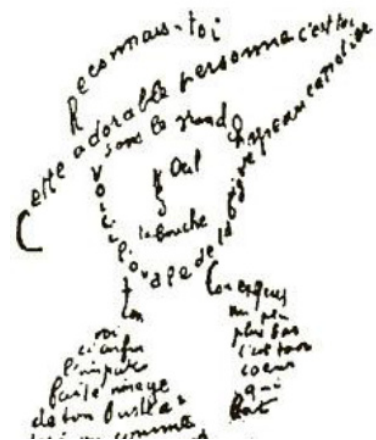 Reconnais-toi
Cette adorable personne c'est toi
sous le grand chapeau canotier
Œil
Nez
la bouche
Voici l'ovale de ta figure
ton
cou exquis
voi
ci enfin
l'impar
faite image
de ton buste a
un peu
plus bas
c'est ton
coeur
qui
bat
comme